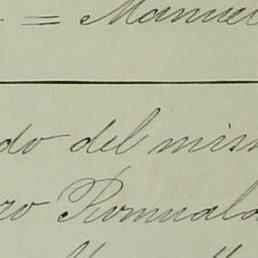 = Manuel
do del mism
ro Romuald